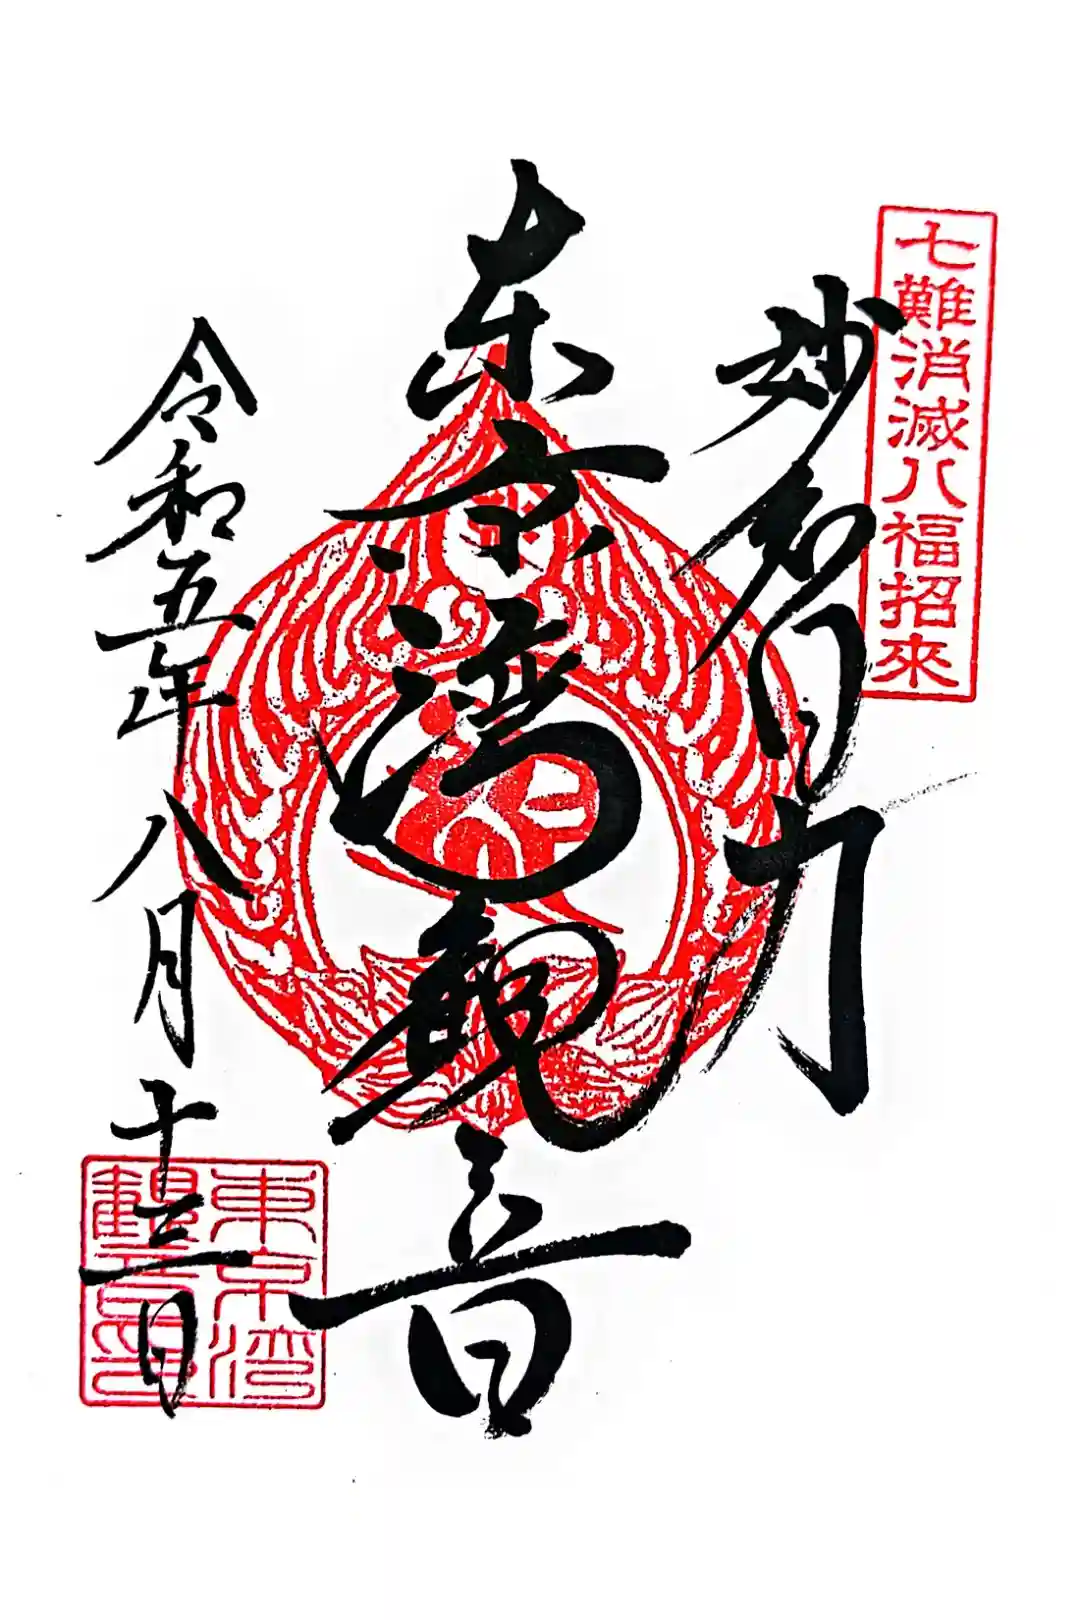 七難消滅八福招來
妙智力
東京湾觀音
令和五年八月十三日
東京湾
觀音印